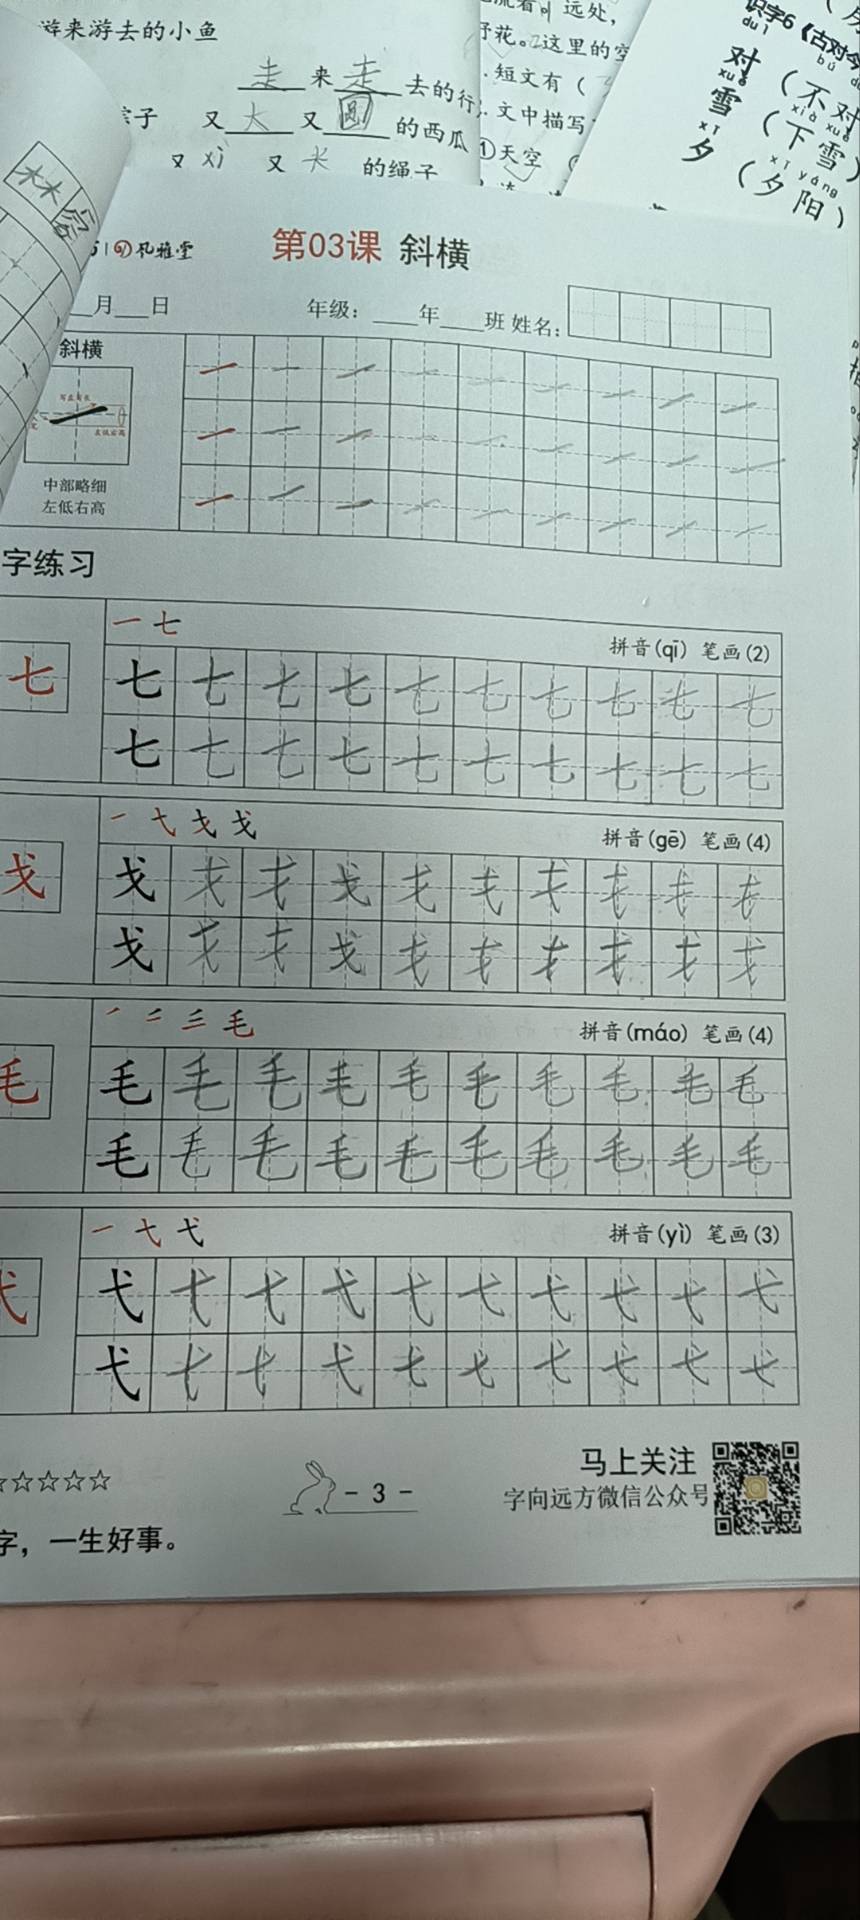 游来游去的小鱼
走来走去的行
子 又大又圆的西瓜
又xì又长的绳子
远处，
野花。这里的空
短文有（
文中描写
①天空
识字6《古对今
duì bú duì
对（不对）
xuě xià xuě
雪（下雪）
xī xī yáng
夕（夕阳）
林
第03课 斜横
月 日 年级： 年 班 姓名：
斜横
左低右高
中部略细
左低右高
字练习
一 七
拼音(qī) 笔画(2)
七 七 七 七 七 七 七 七 七 七 七
七 七 七 七 七 七 七 七 七 七
一 弋 戈 戈
拼音(gē) 笔画(4)
戈 戈 戈 戈 戈 戈 戈 戈 戈 戈 戈
戈 戈 戈 戈 戈 戈 戈 戈 戈 戈
拼音(máo) 笔画(4)
毛 毛 毛 毛 毛 毛 毛 毛 毛 毛 毛
毛 毛 毛 毛 毛 毛 毛 毛 毛 毛
一 弋 弋
拼音(yì) 笔画(3)
弋 弋 弋 弋 弋 弋 弋 弋 弋 弋 弋
弋 弋 弋 弋 弋 弋 弋 弋 弋 弋
☆☆☆☆☆
- 3 -
马上关注
字向远方微信公众号
字，一生好事。